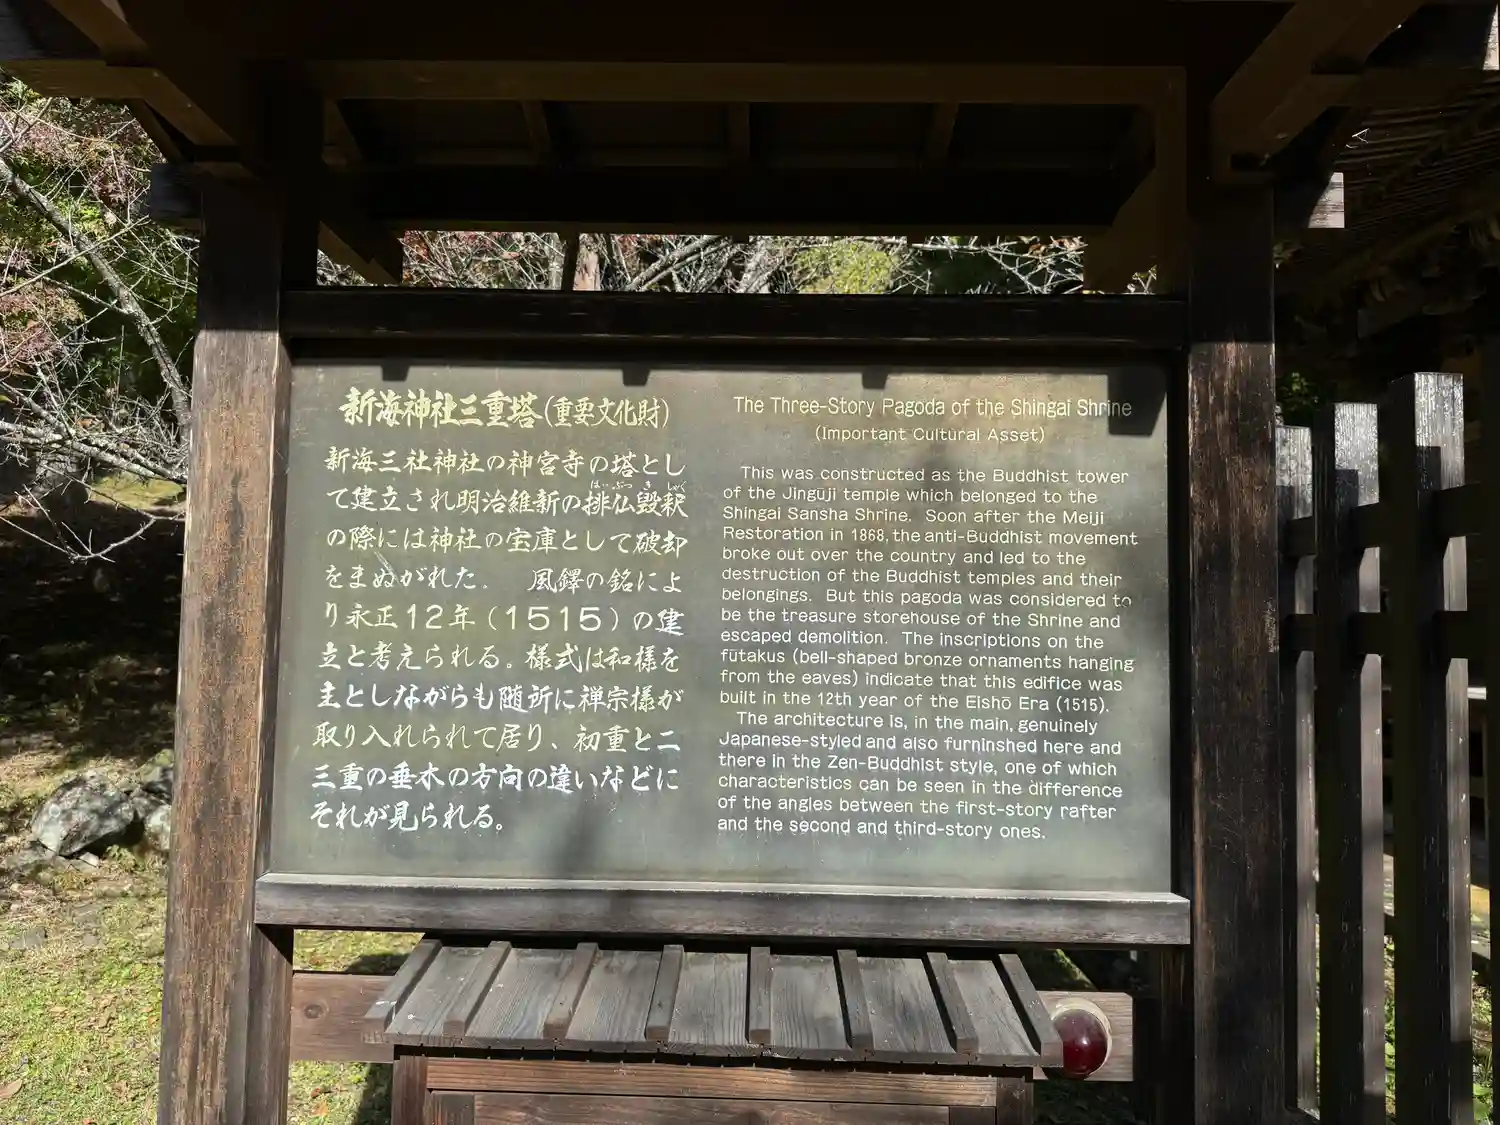 新海神社三重塔(重要文化財)
新海三社神社の神宮寺の塔とし
はいぶつきしゃく
て建立され明治維新の排仏毀釈
の際には神社の宝庫として破却
をまぬがれた。 風鐸の銘によ
り永正12年(1515)の建
立と考えられる。様式は和様を
主としながらも随所に禅宗様が
取り入れられて居り、初重と二
三重の垂木の方向の違いなどに
それが見られる。
The Three-Story Pagoda of the Shingai Shrine
(Important Cultural Asset)
This was constructed as the Buddhist tower
of the Jingūji temple which belonged to the
Shingai Sansha Shrine. Soon after the Meiji
Restoration in 1868, the anti-Buddhist movement
broke out over the country and led to the
destruction of the Buddhist temples and their
belongings. But this pagoda was considered to
be the treasure storehouse of the Shrine and
escaped demolition. The inscriptions on the
fūtakus (bell-shaped bronze ornaments hanging
from the eaves) indicate that this edifice was
built in the 12th year of the Eishō Era (1515).
The architecture is, in the main, genuinely
Japanese-styled and also furninshed here and
there in the Zen-Buddhist style, one of which
characteristics can be seen in the difference
of the angles between the first-story rafter
and the second and third-story ones.